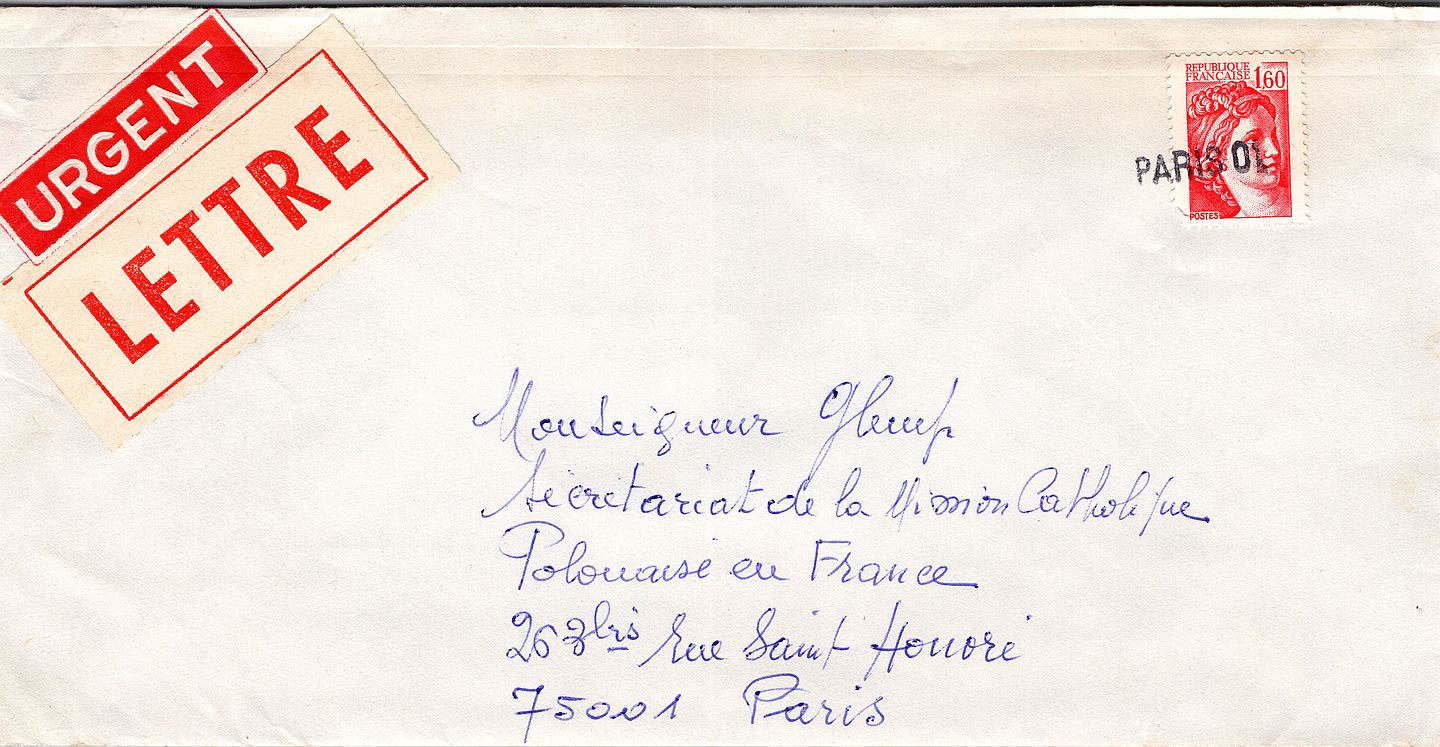 URGENT
LETTRE
REPUBLIQUE
FRANÇAISE 1,60
POSTES
PARIS 01
Monseigneur Glemp
Secrétariat de la Mission Catholique
Polonaise en France
263 bis Rue Saint Honoré
75001 Paris